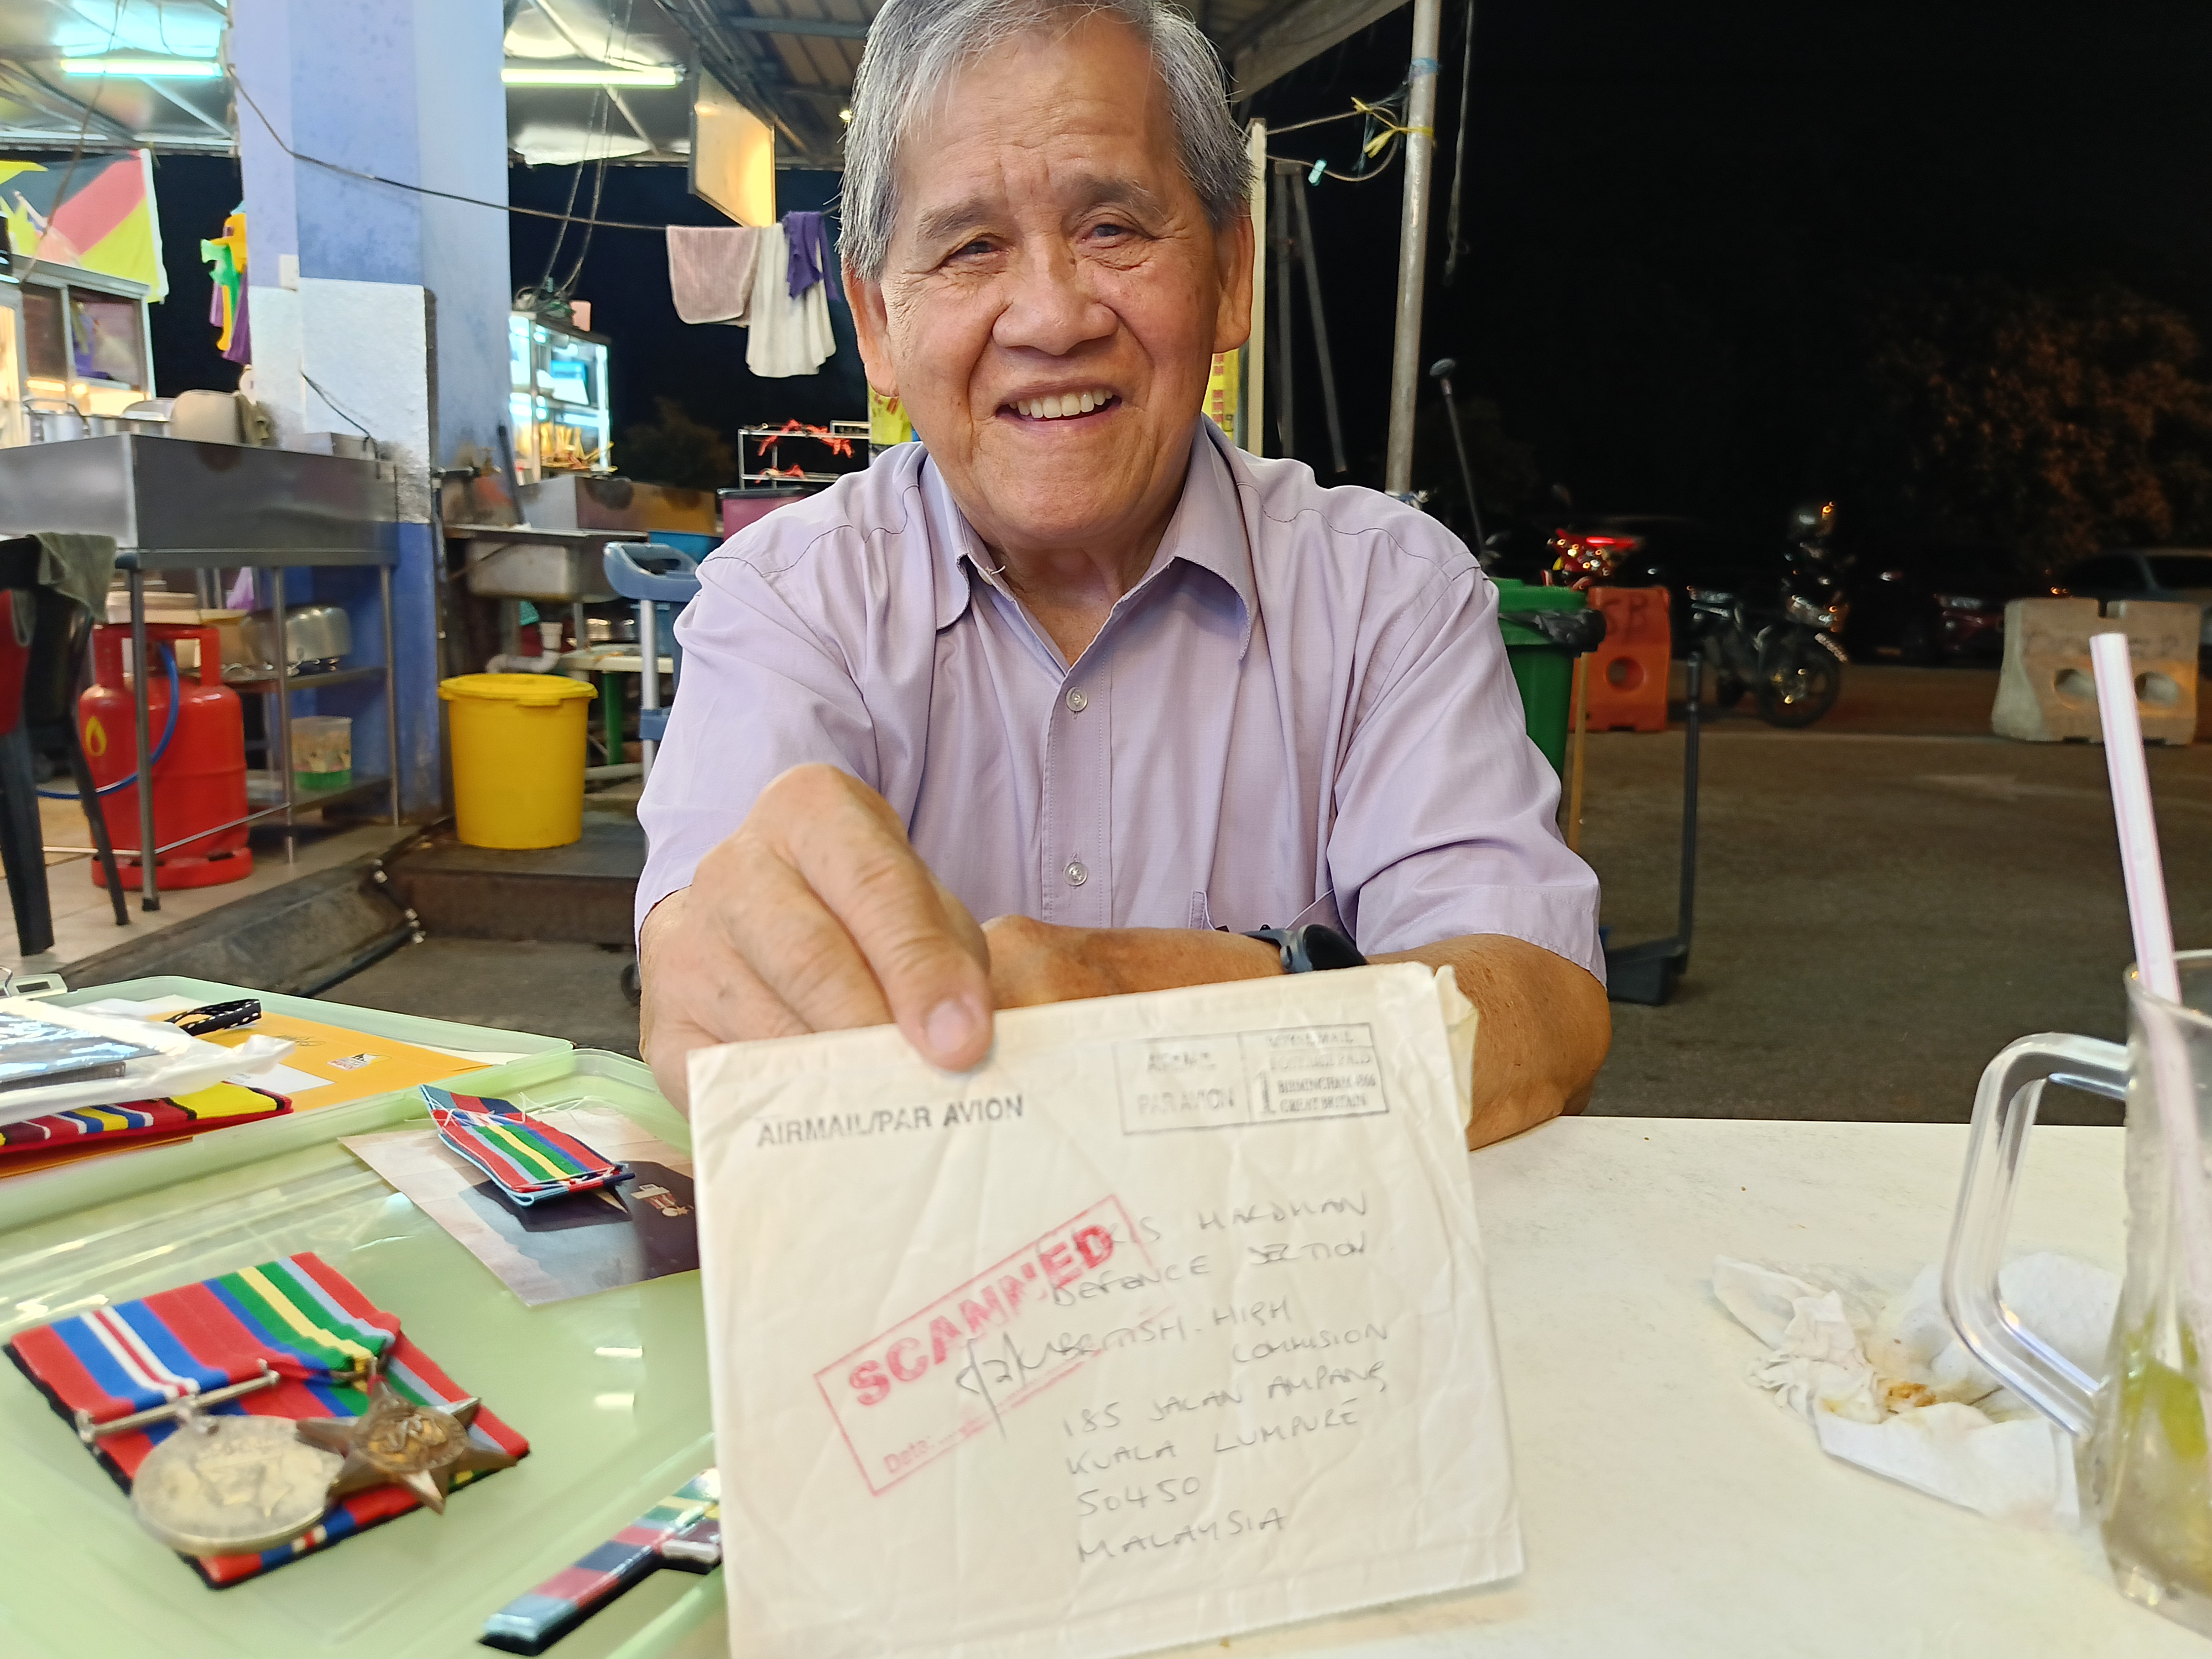 AIRMAIL/PAR AVION
PAR AVION
ROYAL MAIL
POSTAGE PAID
1
BIRMINGHAM
GREAT BRITAIN
SCANNED
Date:
HARDMAN
DEFENCE SECTION
BRITISH HIGH
COMMISION
185 JALAN AMPANG
KUALA LUMPURE
50450
MALAYSIA